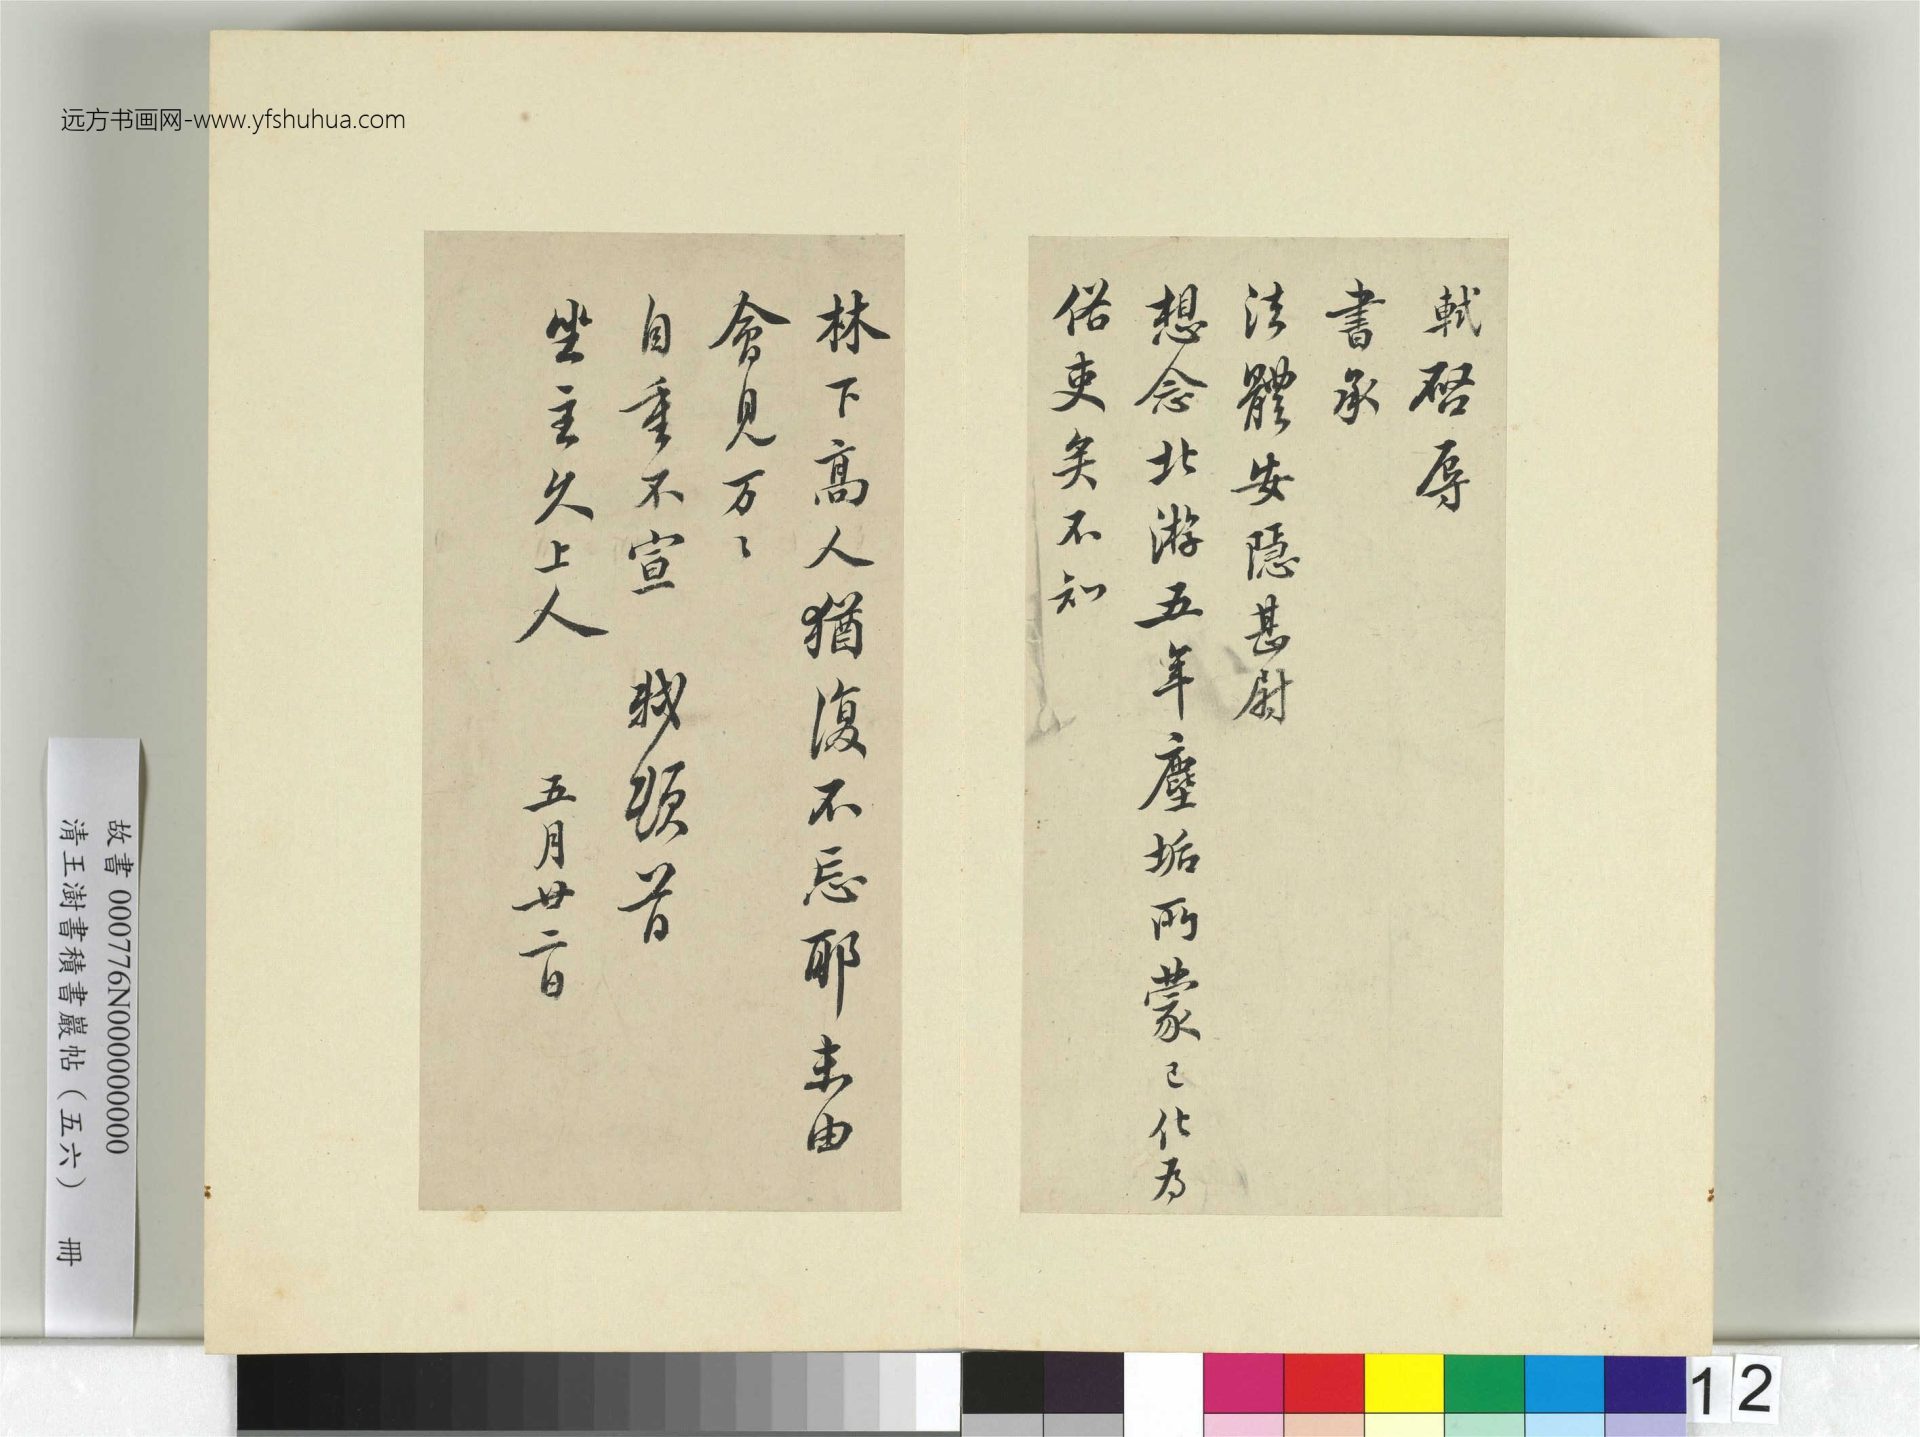 远方书画网-www.yfshuhua.com
軾啓辱
書承
法體安隱甚尉
想念北游五年塵垢所蒙已化为
俗吏矣不知
林下高人猶復不忘耶未由
會見万〻
自重不宣 軾頓首
坐主久上人 五月廿二日
故書 000776N000000000
清王澍書積書巖帖（五六） 冊
12